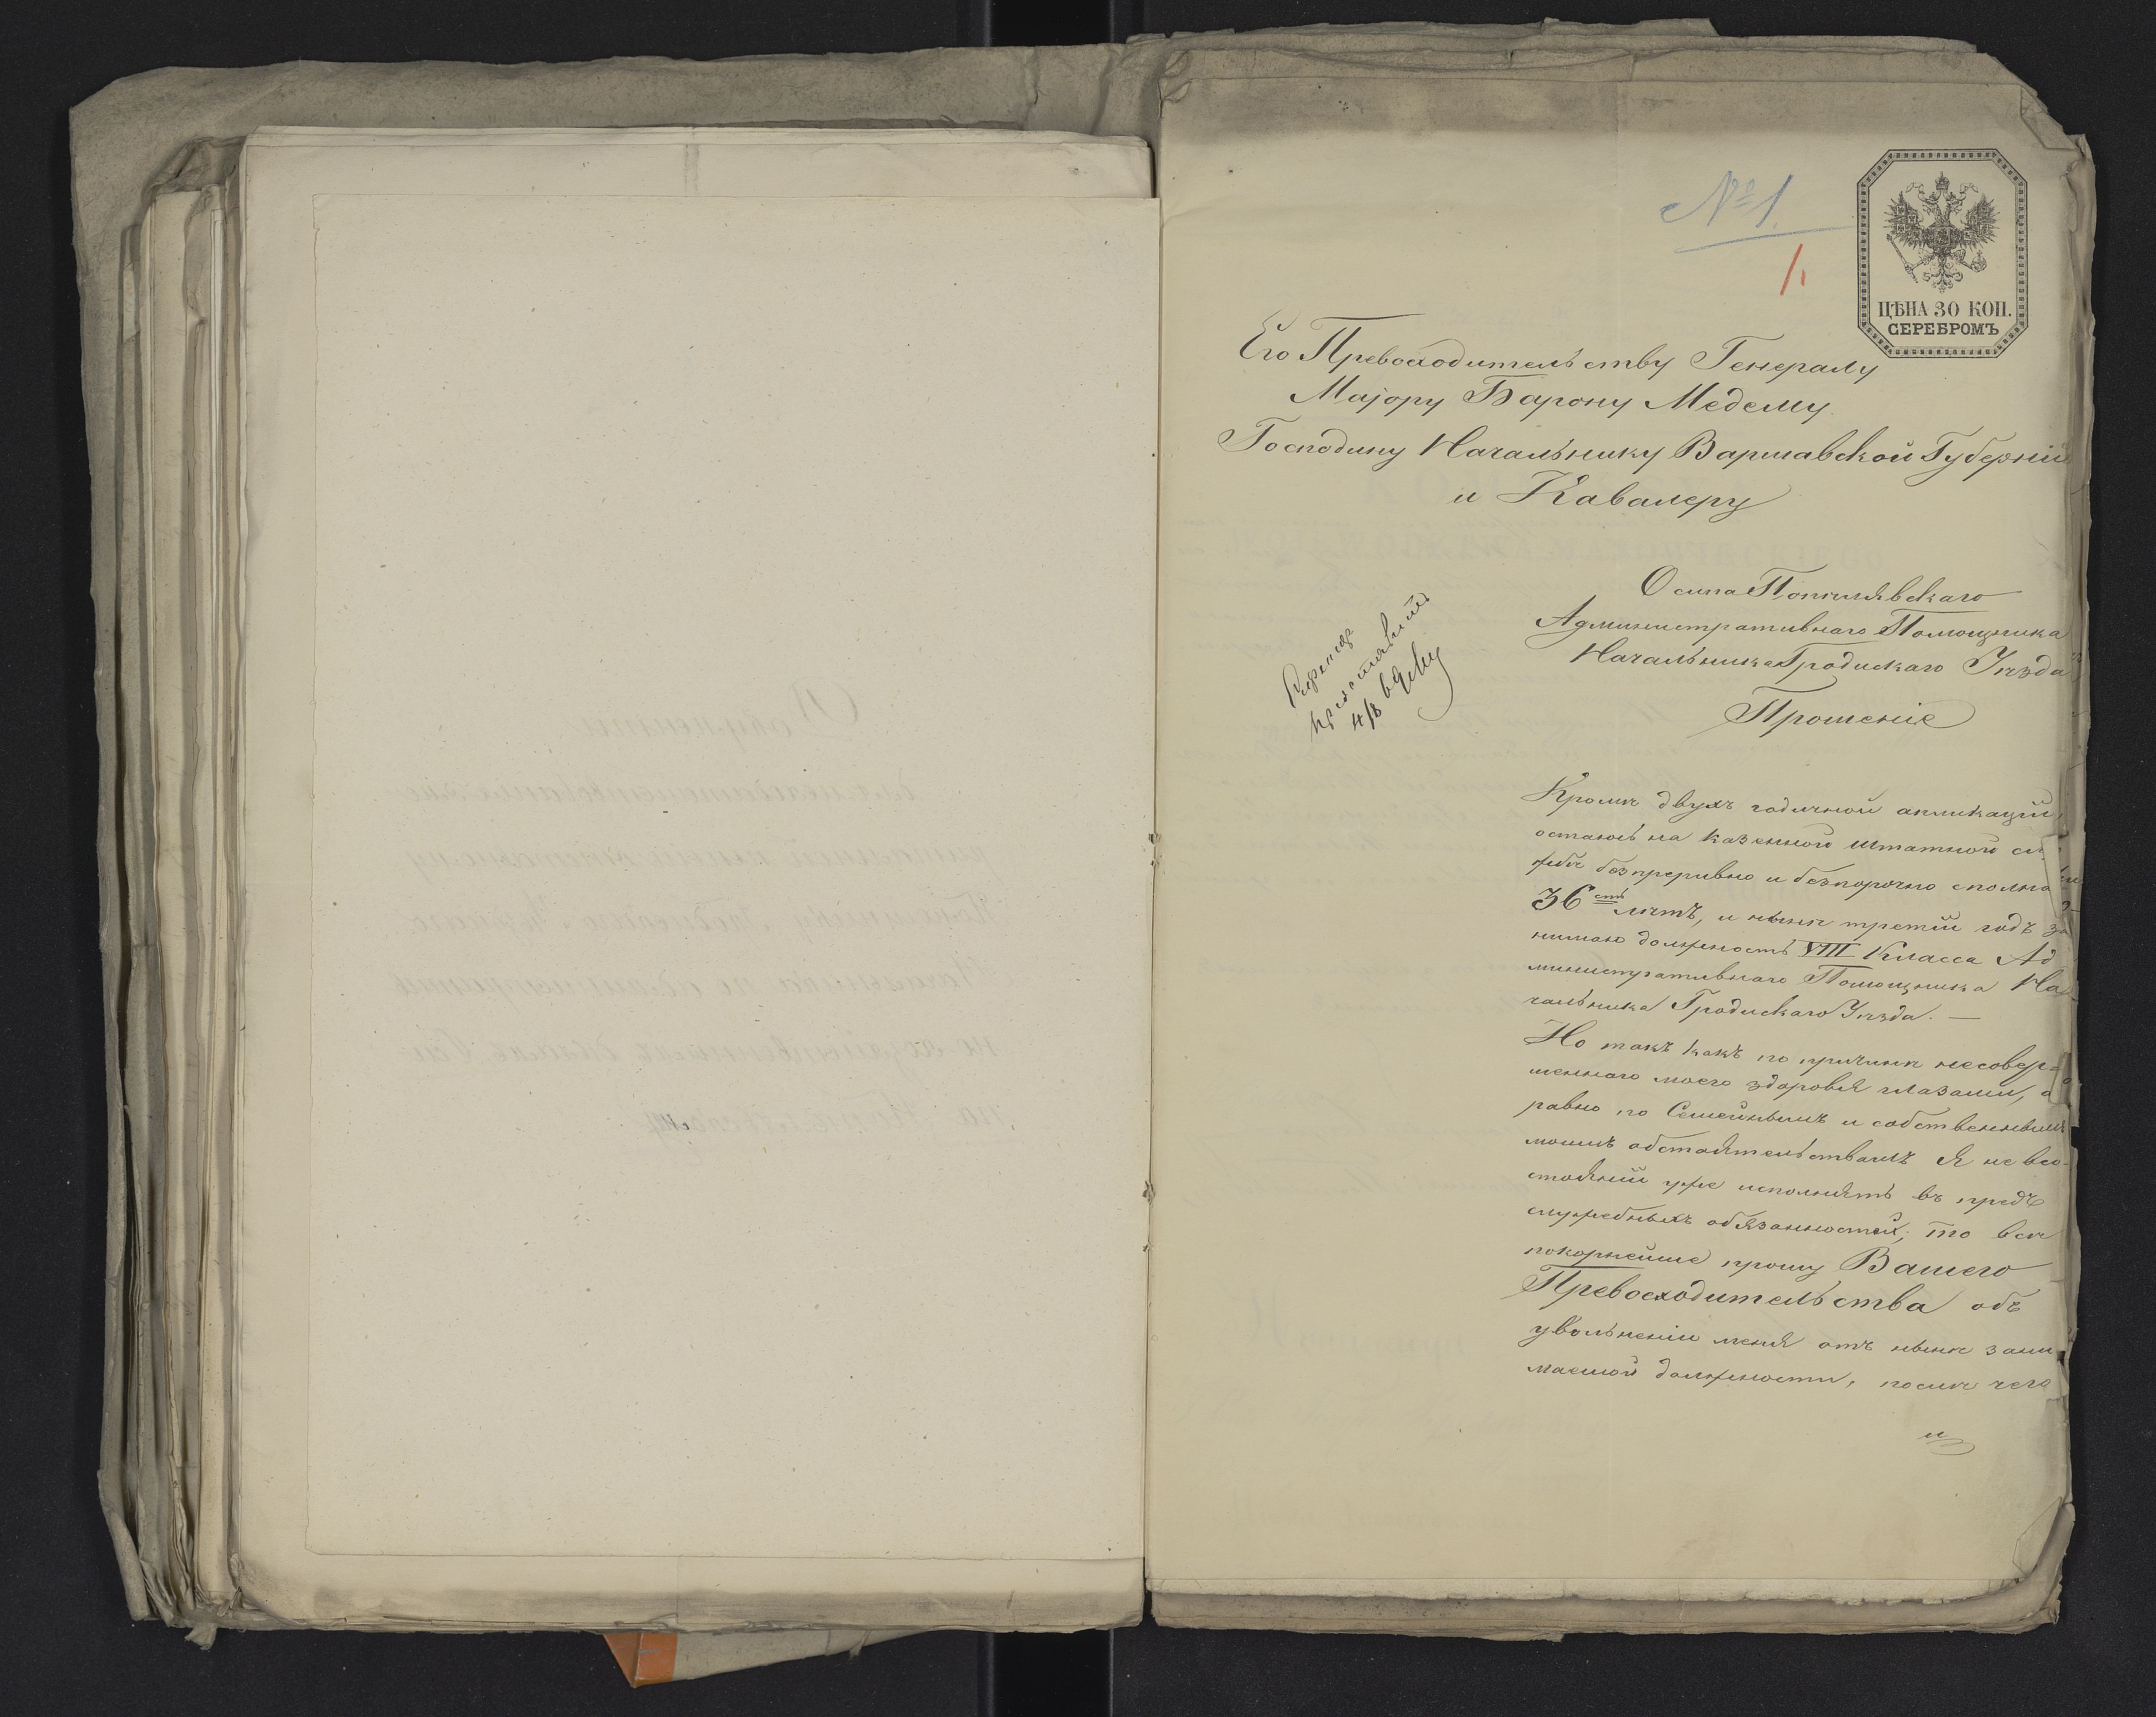 № 1.
1.
ЦѢНА 30 КОП.
СЕРЕБРОМЪ
Его Превосходительству Генералу
Маjору Барону Медему
Господину Начальнику Варшавской Губерніи
и Кавалеру
Осипа Попклявскаго
Административнаго Помощника
Начальника Гродискаго Уѣзда
Прошеніе
4/8
Кромѣ двухъ годичной апликаціи,
остаюсь на казенной штатной слу
жбѣ безпреривно и безпорочно сполна
36 сть лѣтъ, и нынѣ третій годъ за
нимаю должность VIII Класса Ад
министративнаго Помощника На
чальника Гродискаго Уѣзда. —
Но такъ какъ по причинѣ несовер=
шеннаго моего здоровья глазами, а
равно по Семейнымъ и собственнымъ
моимъ обстоятельствамъ Я не въ со-
стояніи уже исполнять въ предъ
служебныхъ обязанностей; то все
покорнейше прошу Вашего
Превосходительства объ
увольненіи меня отъ нынѣ зани
маемой должности, послѣ чего
и